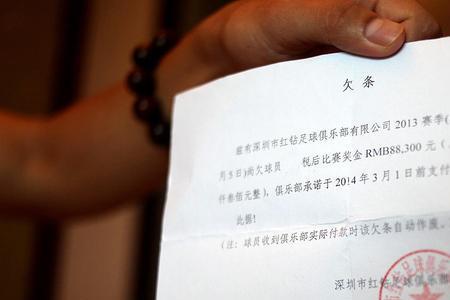 欠 条
兹有深圳市红钻足球俱乐部有限公司 2013 赛季(
月5日)尚欠球员 税后比赛奖金 RMB88,300 元(
仟叁佰元整), 俱乐部承诺于 2014 年 3 月 1 日前支付
此据!
(注: 球员收到俱乐部实际付款时该欠条自动作废。
深圳市红钻足球俱
足球俱乐